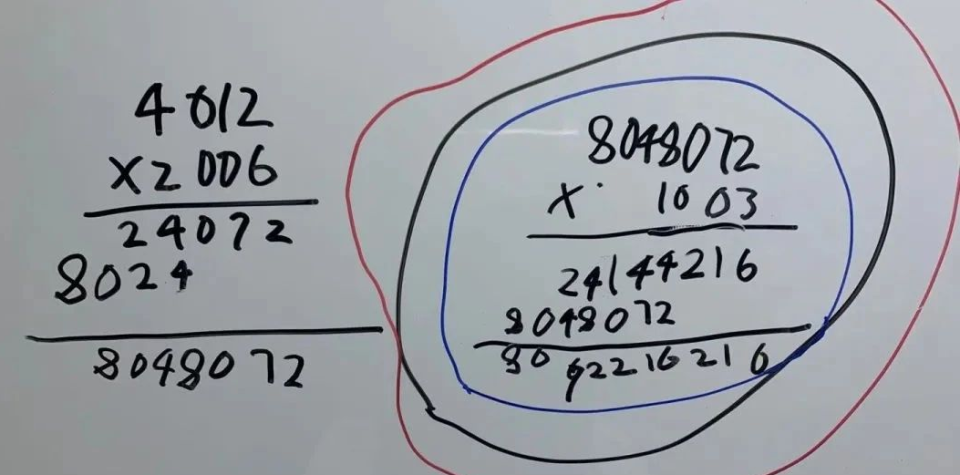 4012
×2006
24072
8024
8048072
8048072
× 1003
24144216
8048072
8072216216